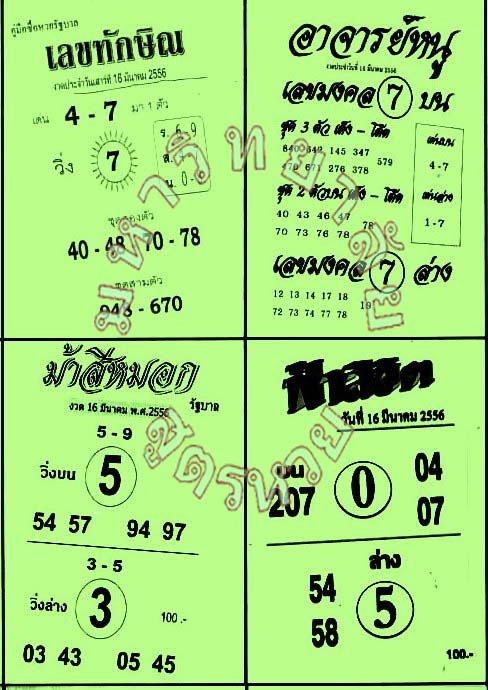 คู่มือซื้อหวยรัฐบาล
เลขทักษิณ
งวดประจำวันเสาร์ที่ 16 มีนาคม 2556
เด่น 4 - 7 มา 1 ตัว
วิ่ง 7
ร. 6-9
น. 0-
ชุดสองตัว
40 - 48 70 - 78
ชุดสามตัว
- 670
อาจารย์หนู
งวดประจำวันที่ 16 มีนาคม 2556
เลขมงคล 7 บน
ชุด 3 ตัว เต็ง - โต๊ด
640 542 145 347
579
470 671 276 378
เด่นบน
4-7
ชุด 2 ตัวบน เต็ง - โต๊ด
40 43 46 47
78
70 73 76 78
เด่นล่าง
1-7
เลขมงคล 7 ล่าง
12 13 14 17 18
19
72 73 74 77 78
มหาวิทยาลัย
สูตรหวย
ม้าสีหมอก
งวด 16 มีนาคม พ.ศ.2556 รัฐบาล
5 - 9
วิ่งบน 5
54 57 94 97
3 - 5
วิ่งล่าง 3
100.-
03 43 05 45
วันที่ 16 มีนาคม 2556
บน
207
0
04
07
ล่าง
54
58
5
100.-